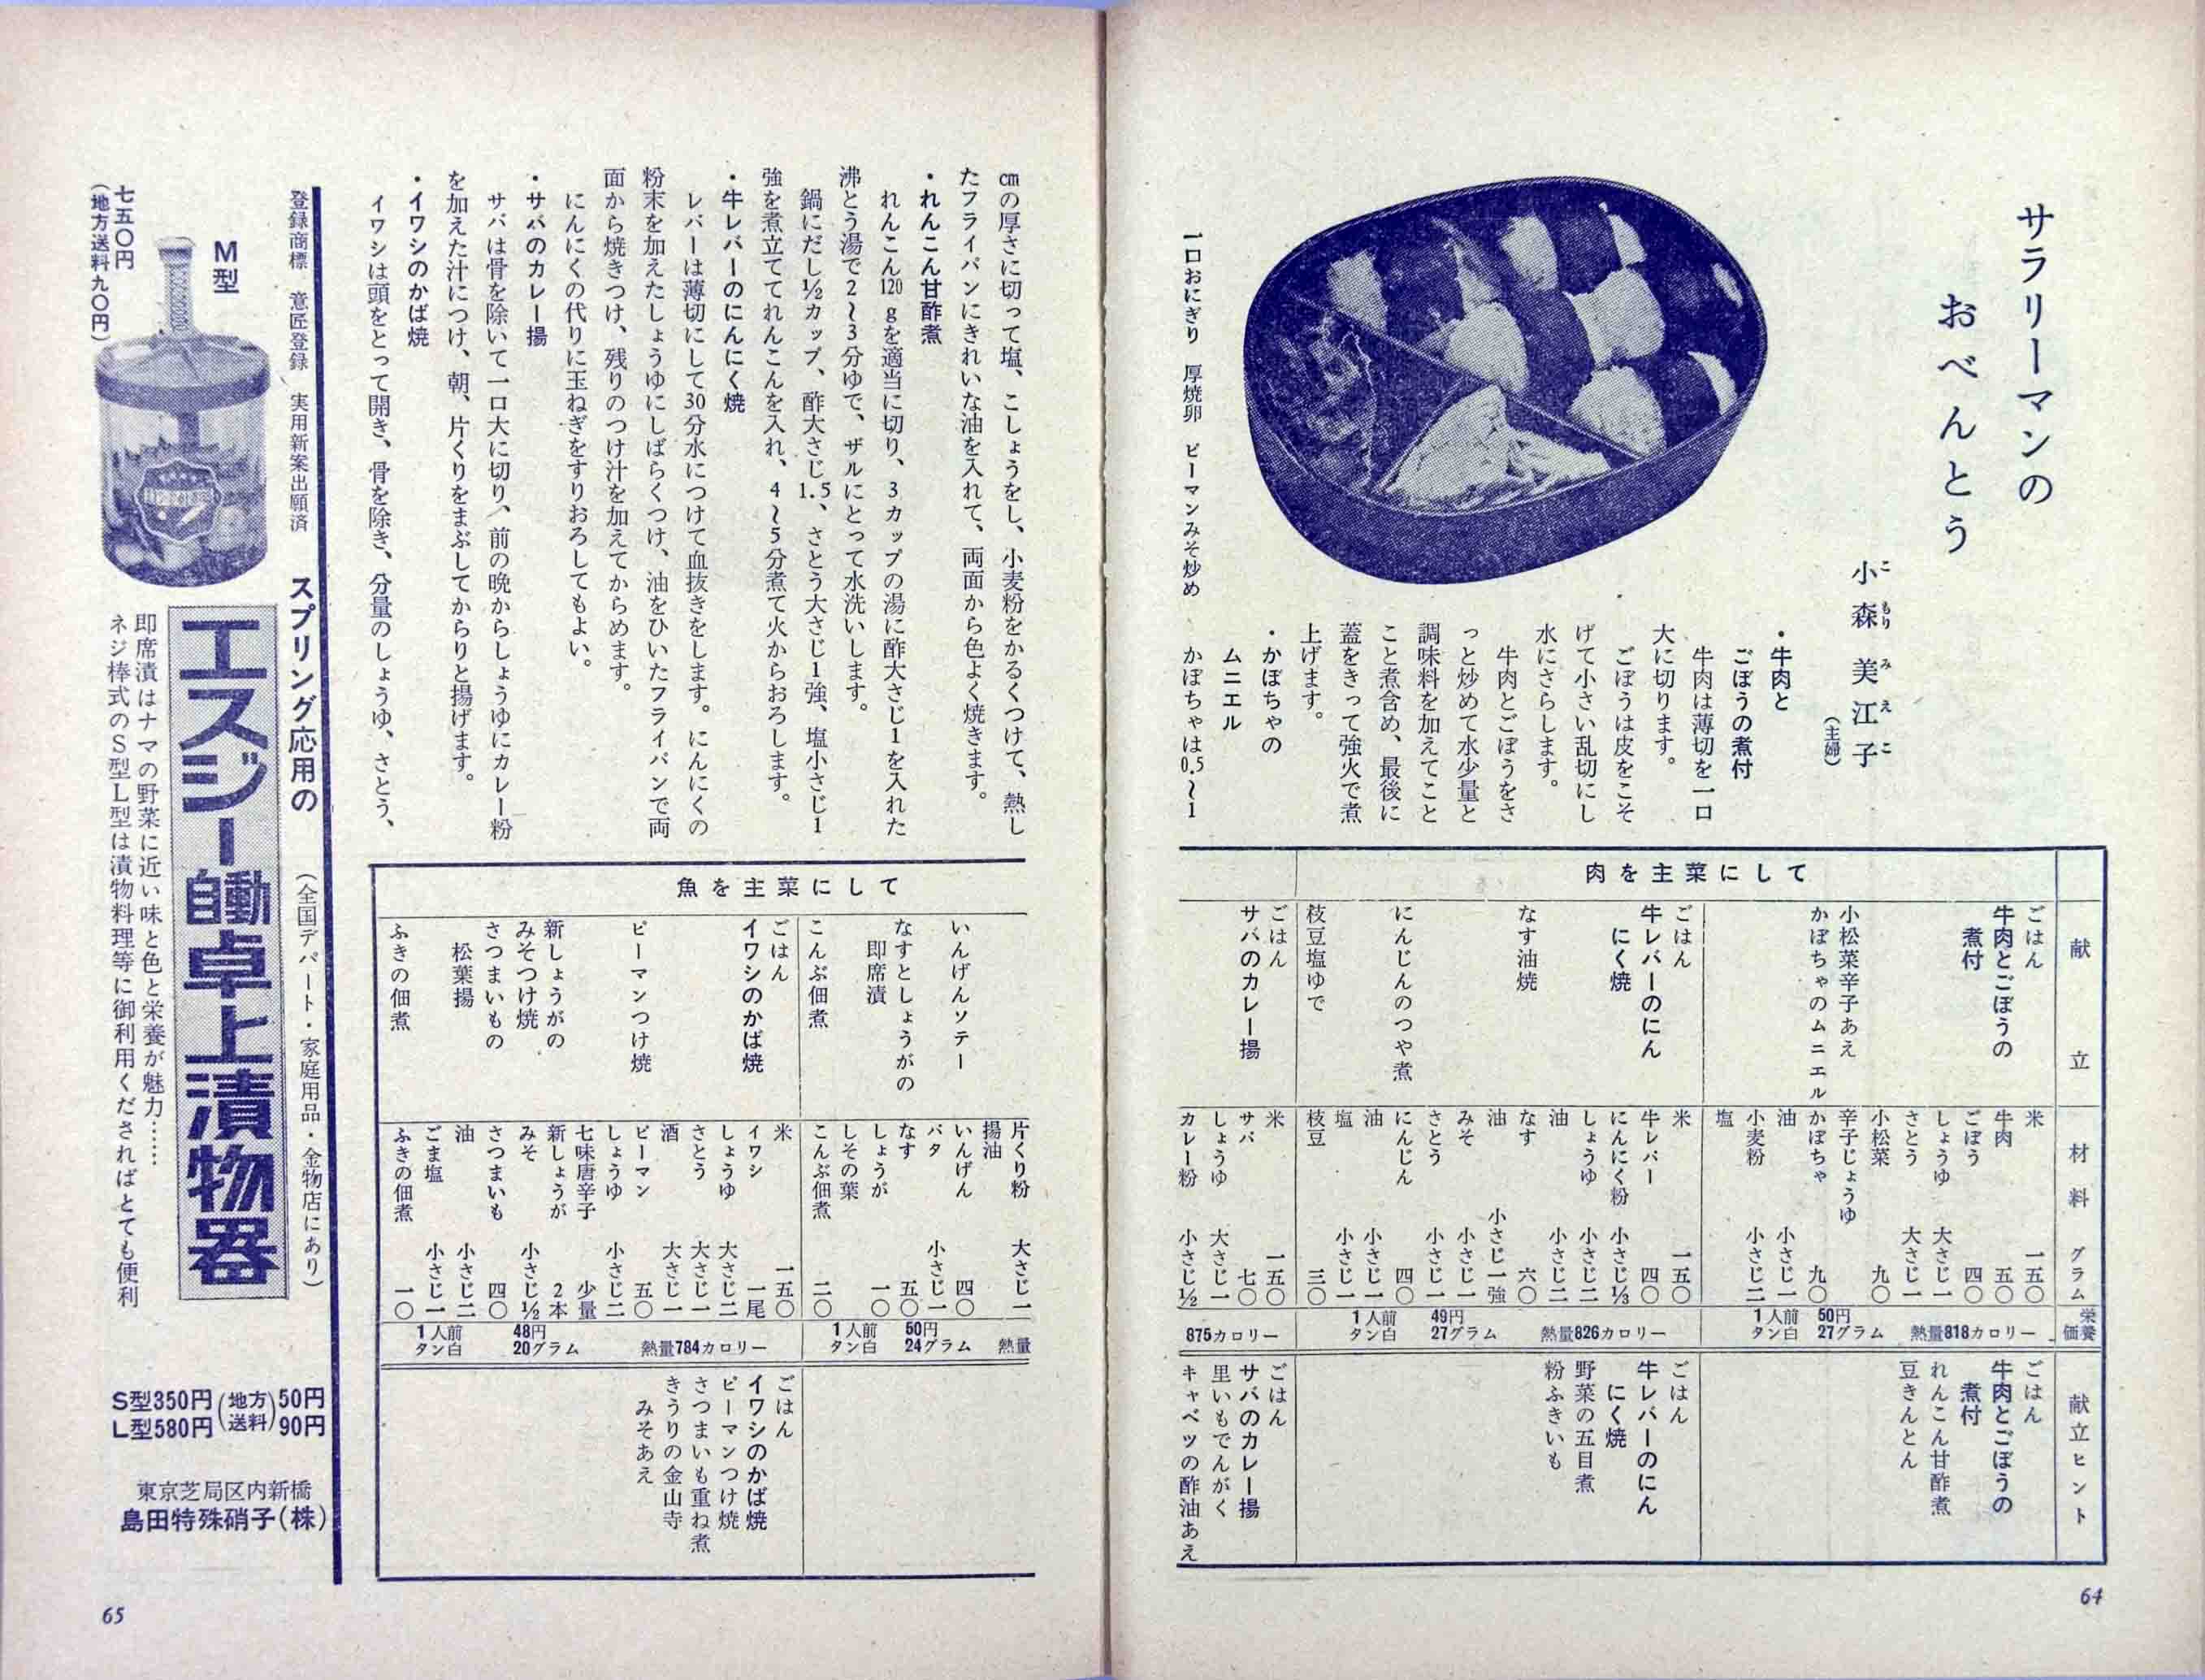 サラリーマンの
おべんとう
小森美江子
こもりみえこ
(主婦)
一口おにぎり 厚焼卵 ピーマンみそ炒め
・牛肉と
ごぼうの煮付
牛肉は薄切を一口
大に切ります。
ごぼうは皮をこそ
げて小さい乱切にし
水にさらします。
牛肉とごぼうをさ
っと炒めて水少量と
調味料を加えてこと
こと煮含め、最後に
蓋をきって強火で煮
上げます。
・かぼちゃの
ムニエル
かぼちゃは0.5〜1
献立
材料 グラム
栄養価
献立ヒント
肉を主菜にして
ごはん
牛肉とごぼうの
煮付
小松菜辛子あえ
かぼちゃのムニエル
米 一五〇
牛肉 五〇
ごぼう 四〇
しょうゆ 大さじ一
さとう 大さじ一
小松菜 九〇
辛子じょうゆ
かぼちゃ 九〇
油 小さじ一
小麦粉 小さじ二
塩
1人前 50円 熱量818カロリー
タン白 27グラム
ごはん
牛肉とごぼうの
煮付
れんこん甘酢煮
豆きんとん
ごはん
牛レバーのにん
にく焼
なす油焼
にんじんのつや煮
枝豆塩ゆで
米 一五〇
牛レバー 四〇
にんにく粉 小さじ⅓
しょうゆ 小さじ二
油 小さじ二
なす 六〇
油 小さじ一強
みそ 小さじ一
さとう 小さじ一
にんじん 四〇
油 小さじ一
塩 小さじ一
枝豆 三〇
1人前 49円 熱量826カロリー
タン白 27グラム
ごはん
牛レバーのにん
にく焼
野菜の五目煮
粉ふきいも
ごはん
サバのカレー揚
米 一五〇
サバ 七〇
しょうゆ 大さじ一
カレー粉 小さじ½
875カロリー
ごはん
サバのカレー揚
里いもでんがく
キャベツの酢油あえ
64
cmの厚さに切って塩、こしょうをし、小麦粉をかるくつけて、熱し
たフライパンにきれいな油を入れて、両面から色よく焼きます。
・れんこん甘酢煮
れんこん120gを適当に切り、3カップの湯に酢大さじ1を入れた
沸とう湯で2〜3分ゆで、ザルにとって水洗いします。
鍋にだし½カップ、酢大さじ1.5、さとう大さじ1強、塩小さじ1
強を煮立ててれんこんを入れ、4〜5分煮て火からおろします。
・牛レバーのにんにく焼
レバーは薄切にして30分水につけて血抜きをします。にんにくの
粉末を加えたしょうゆにしばらくつけ、油をひいたフライパンで両
面から焼きつけ、残りのつけ汁を加えてからめます。
にんにくの代りに玉ねぎをすりおろしてもよい。
・サバのカレー揚
サバは骨を除いて一口大に切り、前の晩からしょうゆにカレー粉
を加えた汁につけ、朝、片くりをまぶしてからりと揚げます。
・イワシのかば焼
イワシは頭をとって開き、骨を除き、分量のしょうゆ、さとう、
魚を主菜にして
いんげんソテー
なすとしょうがの
即席漬
こんぶ佃煮
片くり粉 大さじ一
揚油
いんげん 四〇
バタ 小さじ一
なす 五〇
しょうが 一〇
しその葉
こんぶ佃煮 二〇
1人前 50円 熱量
タン白 24グラム
ごはん
イワシのかば焼
ピーマンつけ焼
新しょうがの
みそつけ焼
さつまいもの
松葉揚
ふきの佃煮
米 一五〇
イワシ 一尾
しょうゆ 大さじ二
さとう 大さじ一
酒 大さじ一
ピーマン 五〇
しょうゆ 小さじ二
七味唐辛子 少量
新しょうが 2本
みそ 小さじ½
さつまいも 四〇
油 小さじ二
ごま塩 小さじ一
ふきの佃煮 一〇
1人前 48円 熱量784カロリー
タン白 20グラム
ごはん
イワシのかば焼
ピーマンつけ焼
さつまいも重ね煮
きうりの金山寺
みそあえ
登録商標 意匠登録 実用新案出願済
スプリング応用の
(全国デパート・家庭用品・金物店にあり)
エスジー自動卓上漬物器
M型
七五〇円
(地方送料九〇円)
即席漬はナマの野菜に近い味と色と栄養が魅力……
ネジ棒式のS型L型は漬物料理等に御利用くださればとても便利
S型350円(地方送料)50円
L型580円 90円
東京芝局区内新橋
島田特殊硝子(株)
65